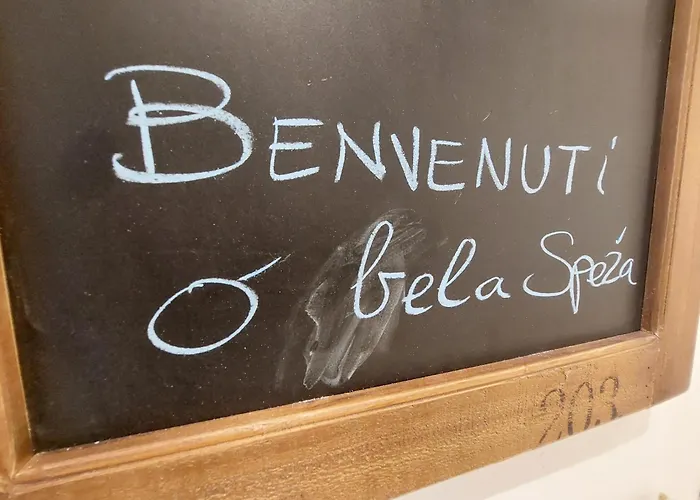 BENVENUTi
Ó bela Speża
203